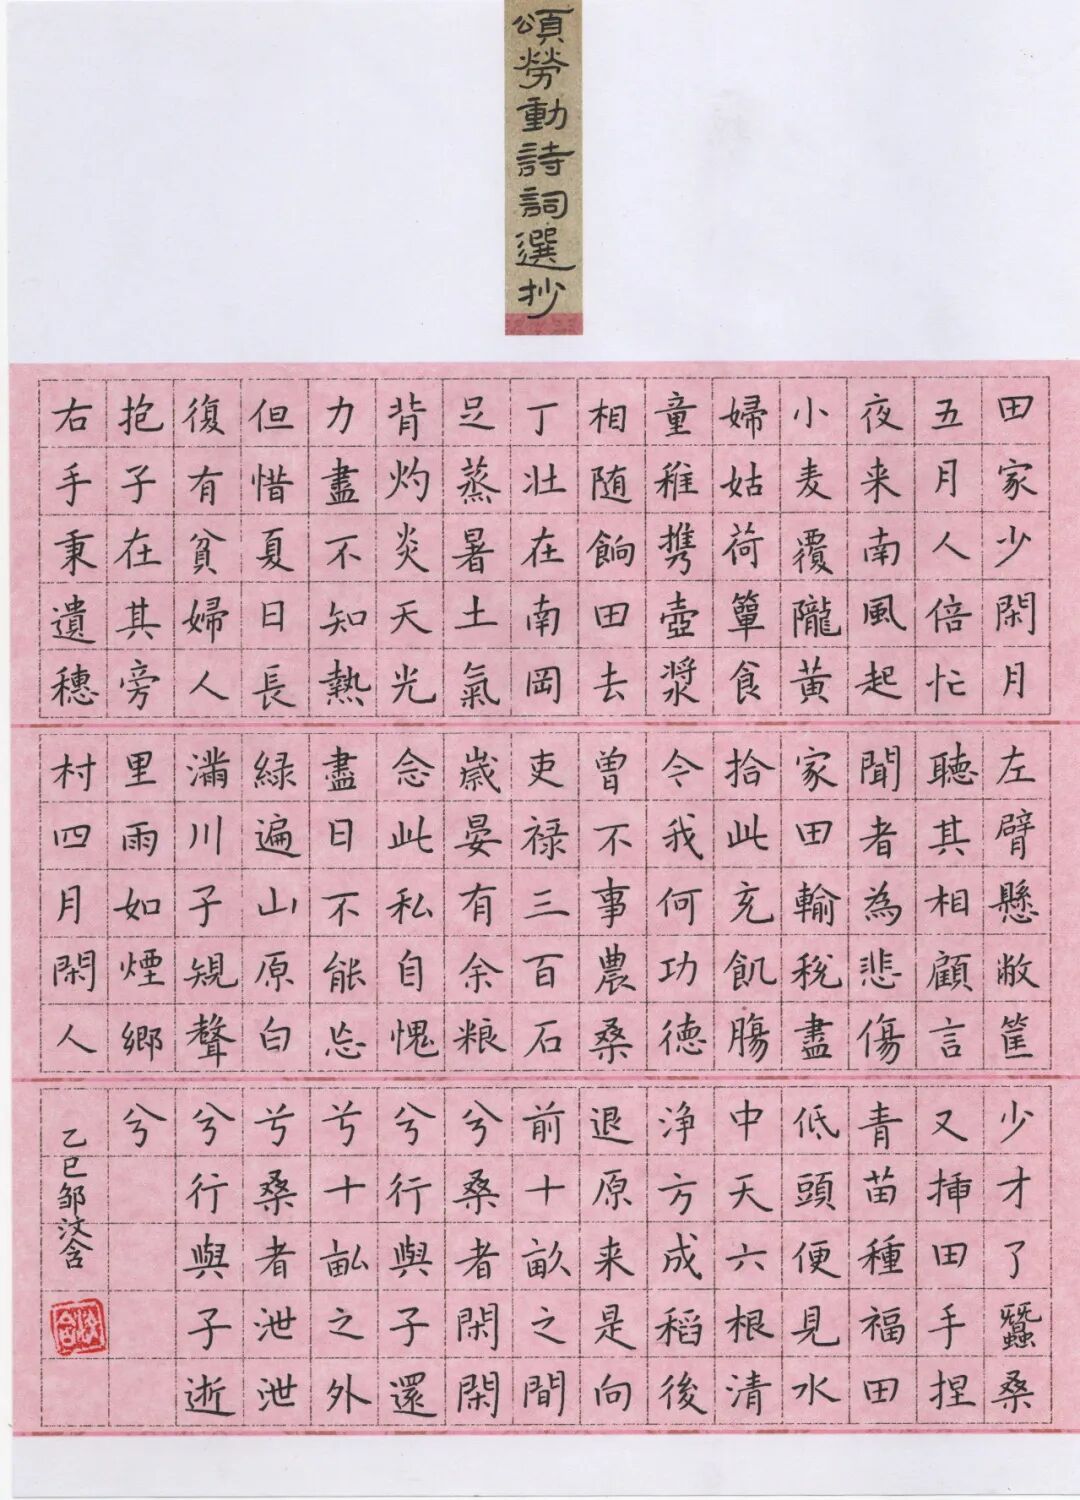 頌勞動詩詞選抄
田家少閑月
五月人倍忙
夜来南風起
小麦覆隴黃
婦姑荷簞食
童稚携壺漿
相随餉田去
丁壯在南岡
足蒸暑土氣
背灼炎天光
力盡不知熱
但惜夏日長
復有貧婦人
抱子在其旁
右手秉遺穗
左臂懸敝筐
聽其相顧言
聞者為悲傷
家田輸稅盡
拾此充飢腸
令我何功德
曾不事農桑
吏禄三百石
嵗晏有余粮
念此私自愧
盡日不能忘
緑遍山原白
滿川子規聲
里雨如煙鄉
村四月閑人
少才了蠶桑
又揷田手捏
青苗種福田
低頭便見水
中天六根清
淨方成稻後
退原来是向
前十畝之間
兮桑者閑閑
兮行與子還
兮十畝之外
兮桑者泄泄
兮行與子逝
兮
乙巳邹汶含